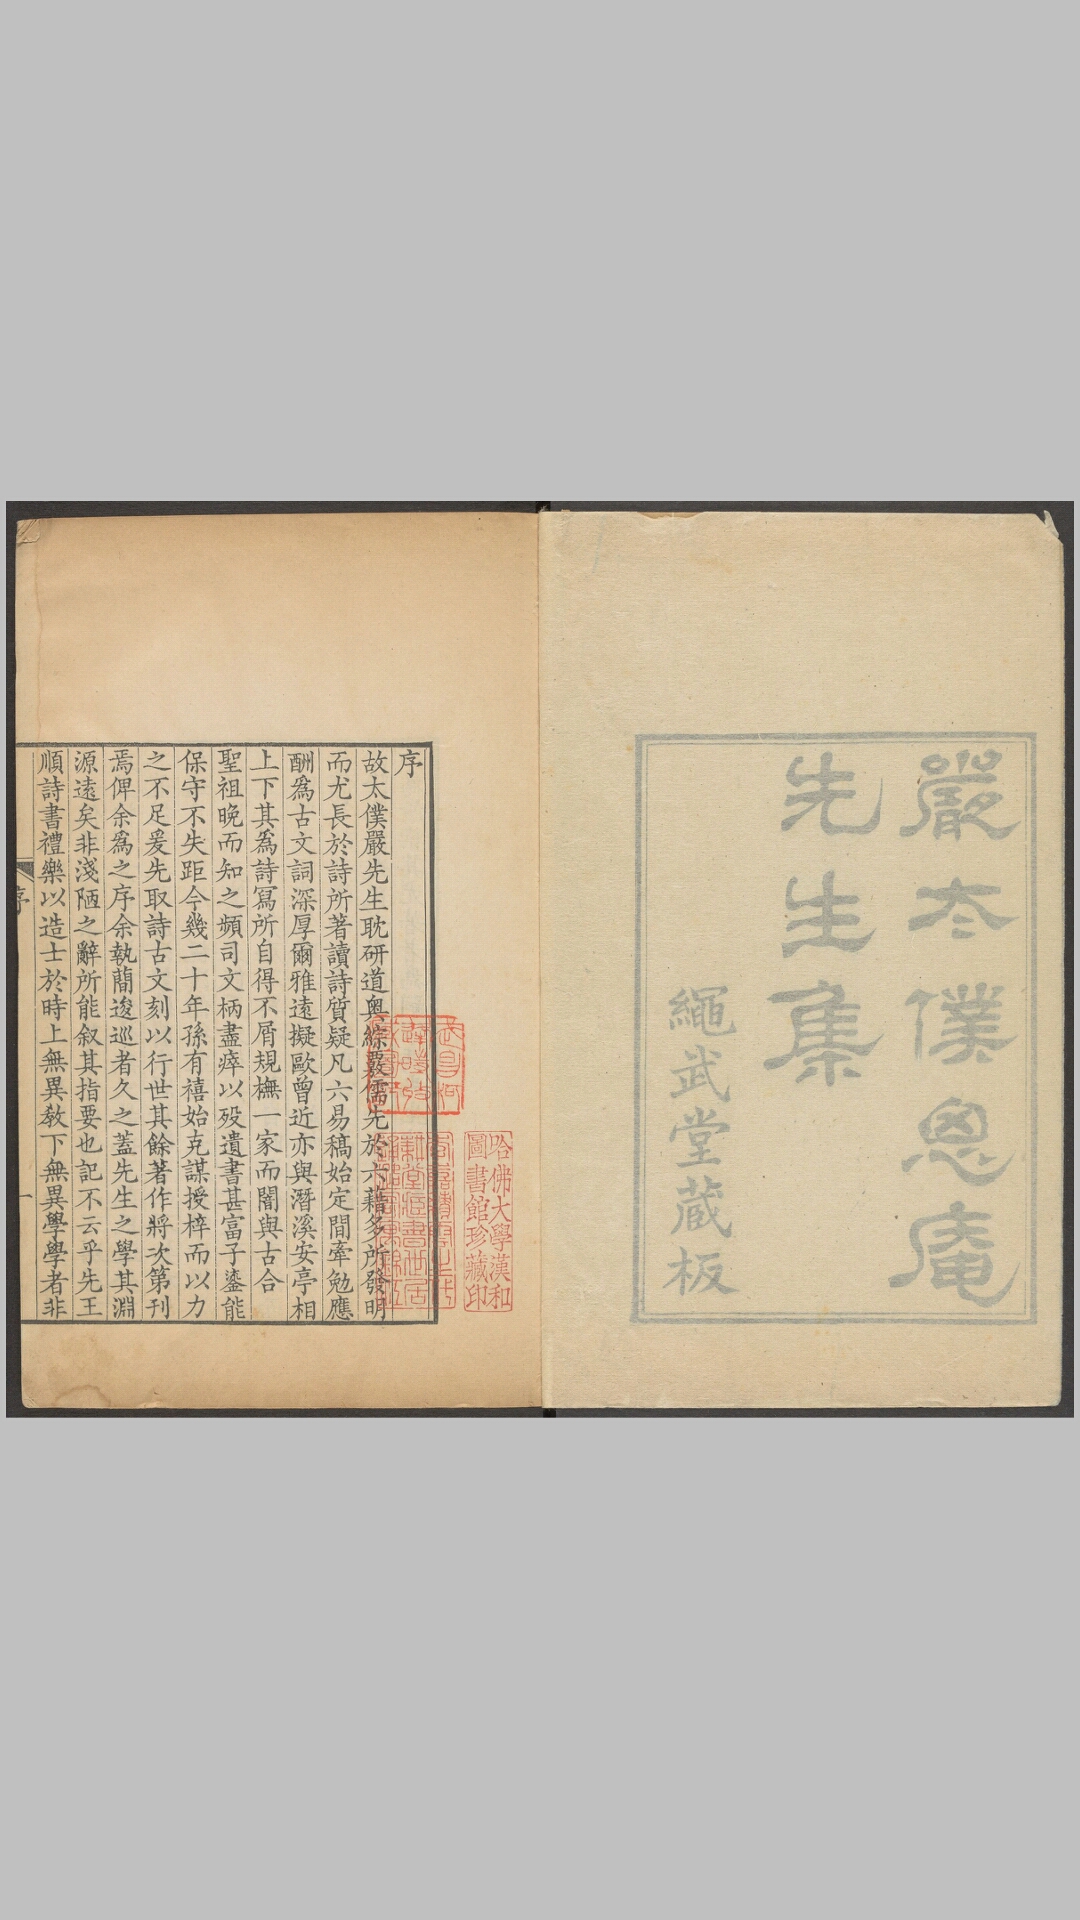 嚴太僕思庵
先生集
繩武堂藏板
序
故太僕嚴先生耽研道奧綜覈儒先於六藉多所發明
而尤長於詩所著讀詩質疑凡六易稿始定間牽勉應
酬爲古文詞深厚爾雅遠擬歐曾近亦與潛溪安亭相
上下其爲詩寫所自得不屑規橅一家而闇與古合
聖祖晚而知之頻司文柄盡瘁以歿遺書甚富子鎏能
保守不失距今幾二十年孫有禧始克謀授梓而以力
之不足爰先取詩古文刻以行世其餘著作將次第刊
焉俾余爲之序余執蕳逡巡者久之蓋先生之學其淵
源遠矣非淺陋之辭所能叙其指要也記不云乎先王
順詩書禮樂以造士於時上無異教下無異學學者非
序
一
哈佛大學漢和
圖書館珍藏印